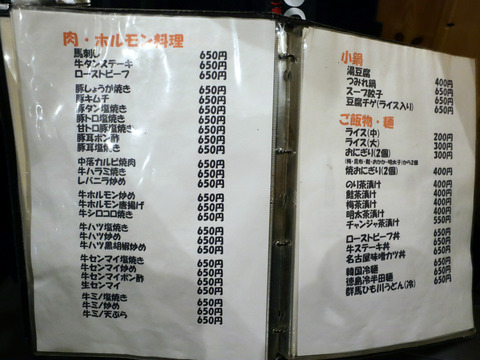 肉・ホルモン料理
馬刺し 650円
牛タンステーキ 650円
ローストビーフ 650円
豚しょうが焼き 650円
豚キムチ 650円
豚タン塩焼き 650円
豚トロ塩焼き 650円
甘トロ豚塩焼き 650円
豚耳ポン酢 650円
豚耳塩焼き 650円
中落カルビ焼肉 650円
牛ハラミ焼き 650円
レバニラ炒め 650円
牛ホルモン炒め 650円
牛ホルモン唐揚げ 650円
牛シロコロ焼き 650円
牛ハツ塩焼き 650円
牛ハツ炒め 650円
牛ハツ黒胡椒炒め 650円
牛センマイ塩焼き 650円
牛センマイ炒め 650円
牛センマイポン酢 650円
生センマイ 650円
牛ミノ塩焼き 650円
牛ミノ炒め 650円
牛ミノ天ぷら 650円
小鍋
湯豆腐 400円
つみれ鍋 650円
スープ餃子 650円
豆腐チゲ(ライス入り) 650円
ご飯物・麺
ライス(中) 200円
ライス(大) 300円
おにぎり(2個) 300円
焼おにぎり(2個) 400円
のり茶漬け 400円
鮭茶漬け 400円
梅茶漬け 400円
明太茶漬け 400円
チャンジャ茶漬け 550円
ローストビーフ丼 650円
牛ステーキ丼 650円
名古屋味噌カツ丼 650円
韓国冷麺 650円
徳島冷半田麺 650円
群馬ひも川うどん(冷) 650円